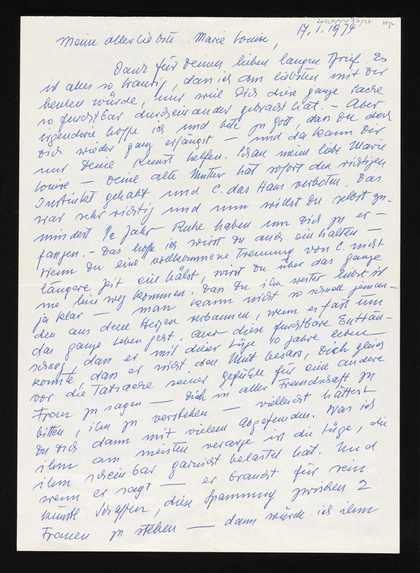 17. I. 1974
Meine allerliebste Marie Louise,
Dank für Deinen lieben langen Brief. Es
ist alles so traurig, dass ich am liebsten mit Dir
heulen würde, nur weil Dich diese ganze Sache
so furchtbar durcheinander gebracht hat. — Aber
irgendwie hoffe ich und bete zu Gott, dass Du doch
Dich wieder ganz erfängst — und da kann Dir
nur Deine Kunst helfen. meine liebe Marie
Louise — Deine alte Mutter hat sofort den richtigen
Instinkt gehabt und C. das Haus verboten. Das
war sehr richtig und nun willst Du selbst zu-
mindest ½ Jahr Ruhe haben um Dich zu er-
fangen. — Das hoffe ich wirst Du auch einhalten —
Wenn Du eine vollkommene Trennung von C. nicht
längere Zeit einhältst, wirst Du über das ganze
nie hinweg kommen. Dass Du ihn weiter liebst ist
ja klar — man kann nicht so schnell jeman-
den aus dem Herzen verbannen, wenn es fast um
das ganze Leben geht. Aber diese furchtbare Enttäu-
schung, dass er mit dieser Lüge 10 Jahre leben
konnte, dass er nicht den Mut besass, Dich gleich
vor die Tatsache seiner Gefühle für eine andere
Frau zu sagen — Dich in aller Freundschaft zu
bitten, ihn zu verstehen — vielleicht hättest
Du Dich dann mit vielem abgefunden. Was ich
ihm am meisten verarge ist die Lüge, die
ihn scheinbar garnicht belastet hat. Und
wenn er sagt — er braucht für sein
künstl. Schaffen, diese Spannung zwischen 2
Frauen zu stehen — dann würde ich ihm